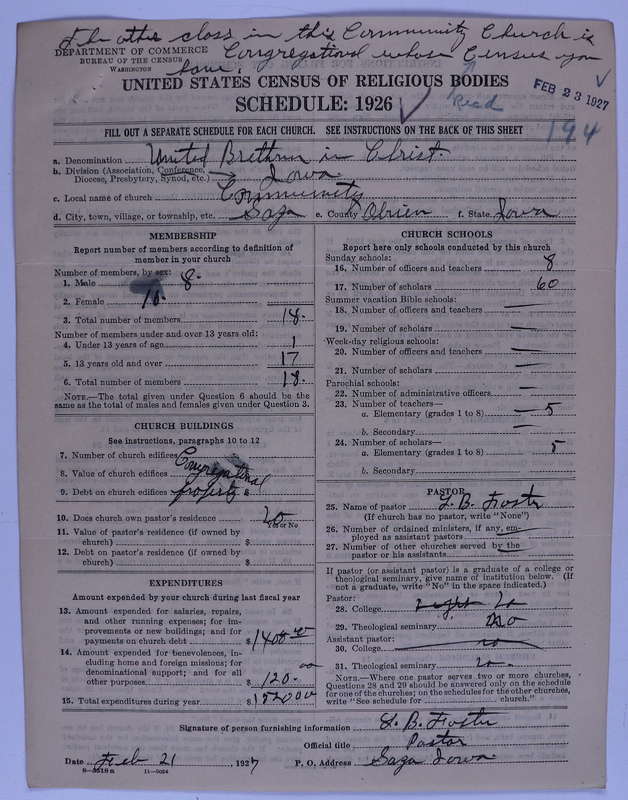 The other class in this Community Church is
DEPARTMENT OF COMMERCE
Congregational whose Census you
BUREAU OF THE CENSUS
WASHINGTON
have.
UNITED STATES CENSUS OF RELIGIOUS BODIES
SCHEDULE: 1926
Read
FEB 23 1927
194
FILL OUT A SEPARATE SCHEDULE FOR EACH CHURCH. SEE INSTRUCTIONS ON THE BACK OF THIS SHEET
a. Denomination United Brethren in Christ.
b. Division (Association, Conference, Diocese, Presbytery, Synod, etc.) Iowa
c. Local name of church Community
d. City, town, village, or township, etc. Gaza e. County Obrien f. State Iowa
MEMBERSHIP
Report number of members according to definition of
member in your church
Number of members, by sex:
1. Male 8.
2. Female 10.
3. Total number of members 18.
Number of members under and over 13 years old:
4. Under 13 years of age 1
5. 13 years old and over 17
6. Total number of members 18.
NOTE.—The total given under Question 6 should be
same as the total of males and females given under Question 3.
CHURCH BUILDINGS
See instructions, paragraphs 10 to 12
7. Number of church edifices Congregational
8. Value of church edifices
9. Debt on church edifices property $
10. Does church own pastor's residence no
Yes or No
11. Value of pastor's residence (if owned by
church) $
12. Debt on pastor's residence (if owned by
church) $
EXPENDITURES
Amount expended by your church during last fiscal year
13. Amount expended for salaries, repairs,
and other running expenses; for im-
provements or new buildings; and for
payments on church debt $1400
14. Amount expended for benevolences, in-
cluding home and foreign missions; for
denominational support; and for all
other purposes $120.00
15. Total expenditures during year $152000
CHURCH SCHOOLS
Report here only schools conducted by this church
Sunday schools:
16. Number of officers and teachers 8
17. Number of scholars 60
Summer vacation Bible schools:
18. Number of officers and teachers —
19. Number of scholars —
Week-day religious schools:
20. Number of officers and teachers —
21. Number of scholars —
Parochial schools:
22. Number of administrative officers —
23. Number of teachers—
a. Elementary (grades 1 to 8) — 5
b. Secondary —
24. Number of scholars—
a. Elementary (grades 1 to 8) 5
b. Secondary
PASTOR
25. Name of pastor L. B. Foster
(If church has no pastor, write "None")
26. Number of ordained ministers, if any, em-
ployed as assistant pastors —
27. Number of other churches served by the
pastor or his assistants —
If pastor (or assistant pastor) is a graduate of a college or
theological seminary, give name of institution below. (If
not a graduate, write "No" in the space indicated.)
Pastor:
28. College no
29. Theological seminary no
Assistant pastor:
30. College no
31. Theological seminary no.
NOTE.—Where one pastor serves two or more churches,
Questions 28 and 29 should be answered only on the schedule
for one of the churches; on the schedules for the other churches,
write "See schedule for church."
Signature of person furnishing information L. B. Foster
Official title Pastor
Date Feb 21 1927 P. O. Address Gaza Iowa
8—5518a 11—9054